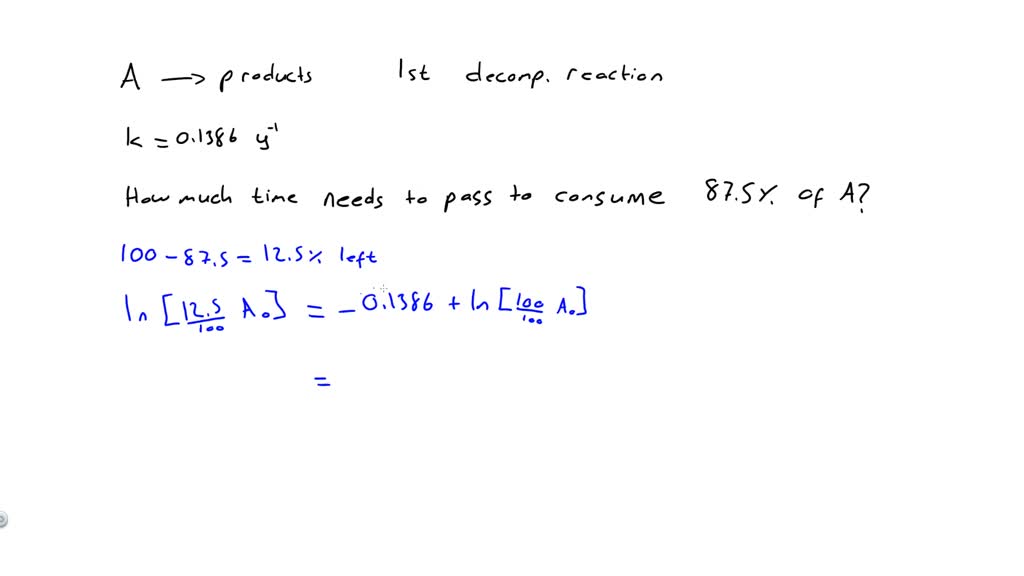 A → products 1st decomp. reaction
k = 0.1386 y⁻¹
How much time needs to pass to consume 87.5% of A?
100 - 87.5 = 12.5% left
ln [12.5/100 A₀] = -0.1386 + ln [100/100 A₀]
=